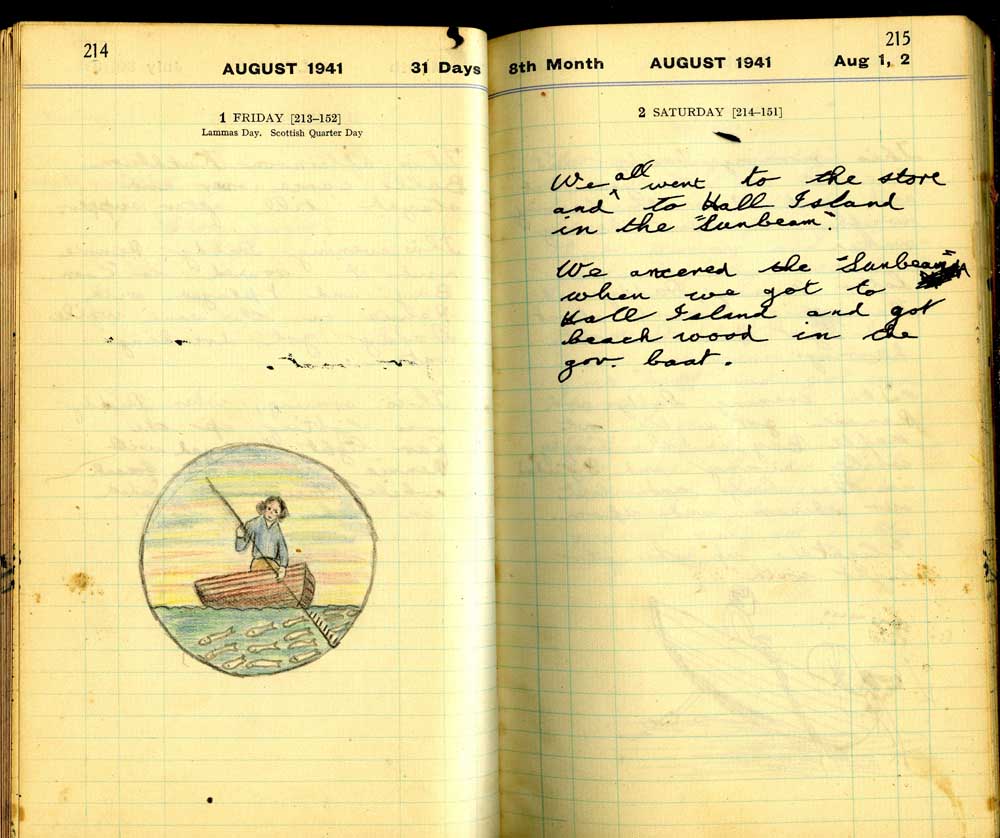 214
AUGUST 1941
31 Days
1 FRIDAY [213–152]
Lammas Day. Scottish Quarter Day
8th Month
AUGUST 1941
215
Aug 1, 2
2 SATURDAY [214–151]
We all went to the store
and to Hall Island
in the "Sunbeam".
We ancered the "Sunbeam"
when we got to
Hall Island and got
beach wood in the
gov. boat.